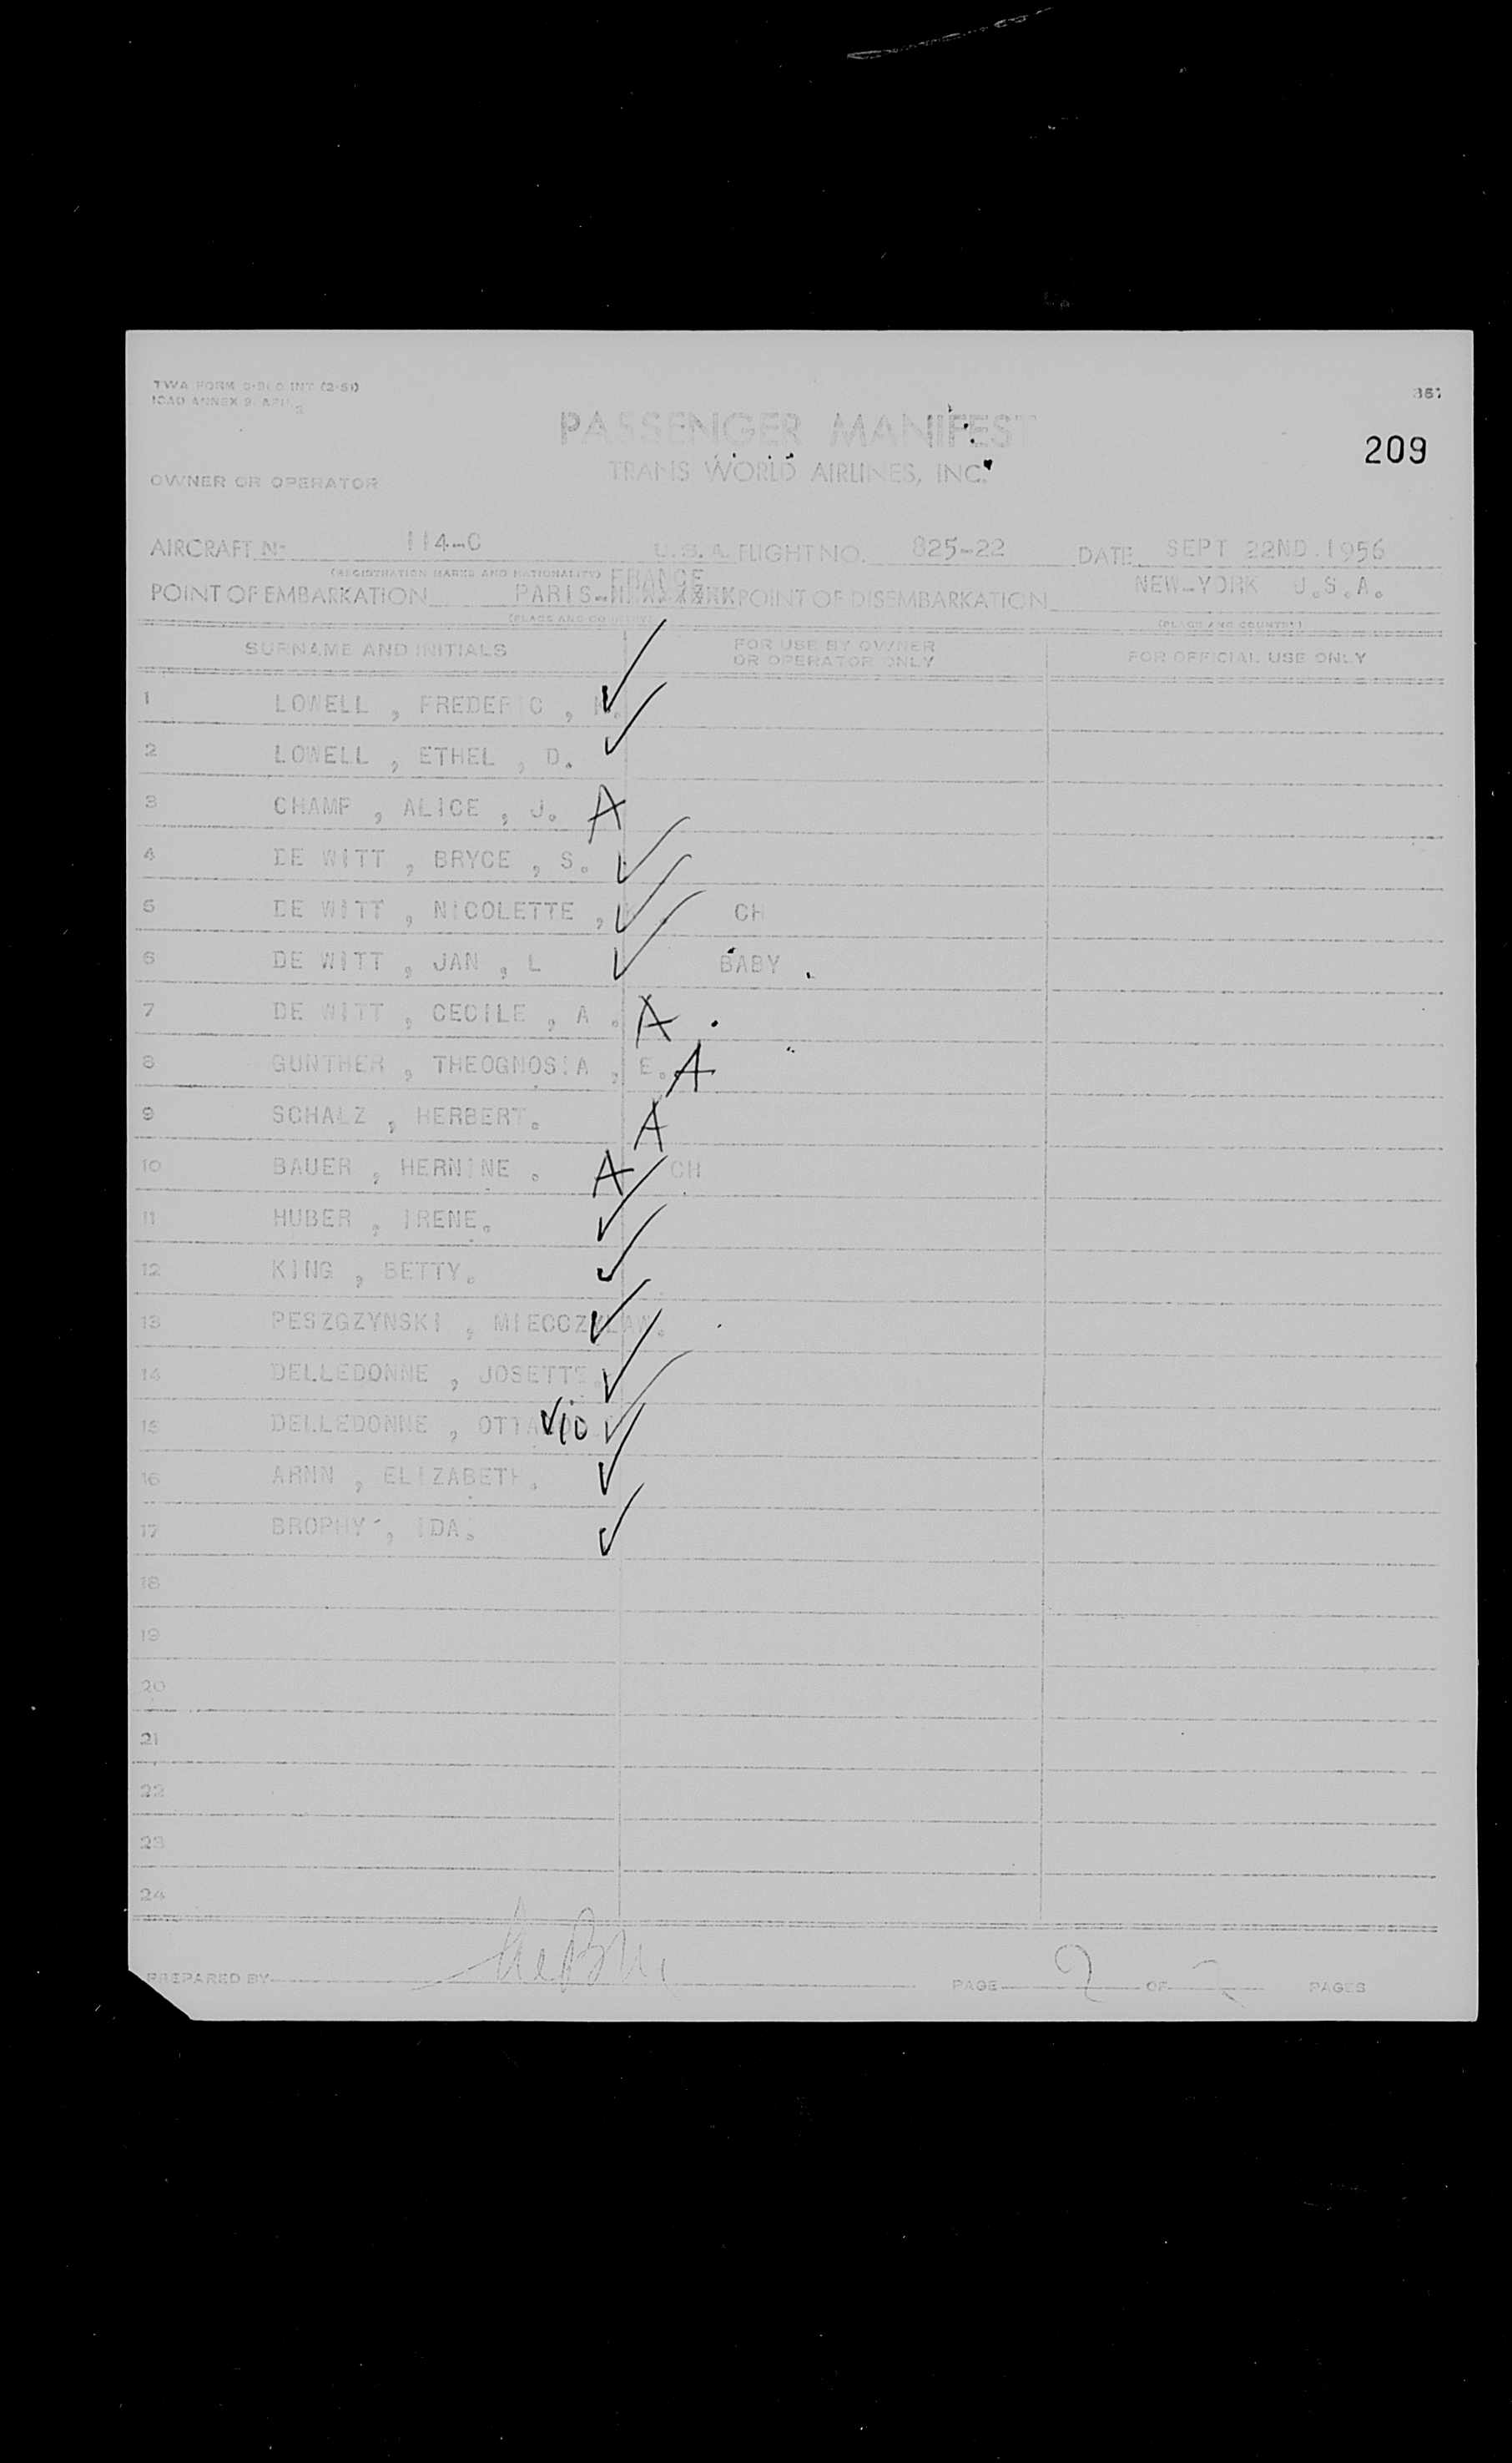 TWA FORM
ICAO ANNEX 9
367
PASSENGER MANIFEST
209
TRANS WORLD AIRLINES, INC.
OWNER OR OPERATOR
AIRCRAFT No 114-C U.S.A. FLIGHT NO. 825-22 DATE SEPT 22ND.1956
(REGISTRATION MARKS AND NATIONALITY) FRANCE
POINT OF EMBARKATION PARIS- POINT OF DISEMBARKATION NEW-YORK U.S.A.
(PLACE AND COUNTRY) (PLACE AND COUNTRY)
SURNAME AND INITIALS FOR USE BY OWNER OR OPERATOR ONLY FOR OFFICIAL USE ONLY
1 LOWELL , FREDERIC , ✓
2 LOWELL , ETHEL , D. ✓
3 CHAMP , ALICE , J. A
4 DE WITT , BRYCE , S. ✓
5 DE WITT , NICOLETTE , ✓ CH
6 DE WITT , JAN , L ✓ BABY .
7 DE WITT , CECILE , A . A
8 GUNTHER , THEOGNOSIA , E. A
9 SCHALZ , HERBERT. A
10 BAUER , HERNINE . A CH
11 HUBER , IRENE. ✓
12 KING , BETTY. ✓
13 PESZGZYNSKI , MIECCZYLAW. ✓
14 DELLEDONNE , JOSETTE. ✓
15 DELLEDONNE , OTTAVIO ✓
16 ARNN , ELIZABETH. ✓
17 BROPHY , IDA. ✓
18
19
20
21
22
23
24
PREPARED BY PAGE 2 OF 2 PAGES